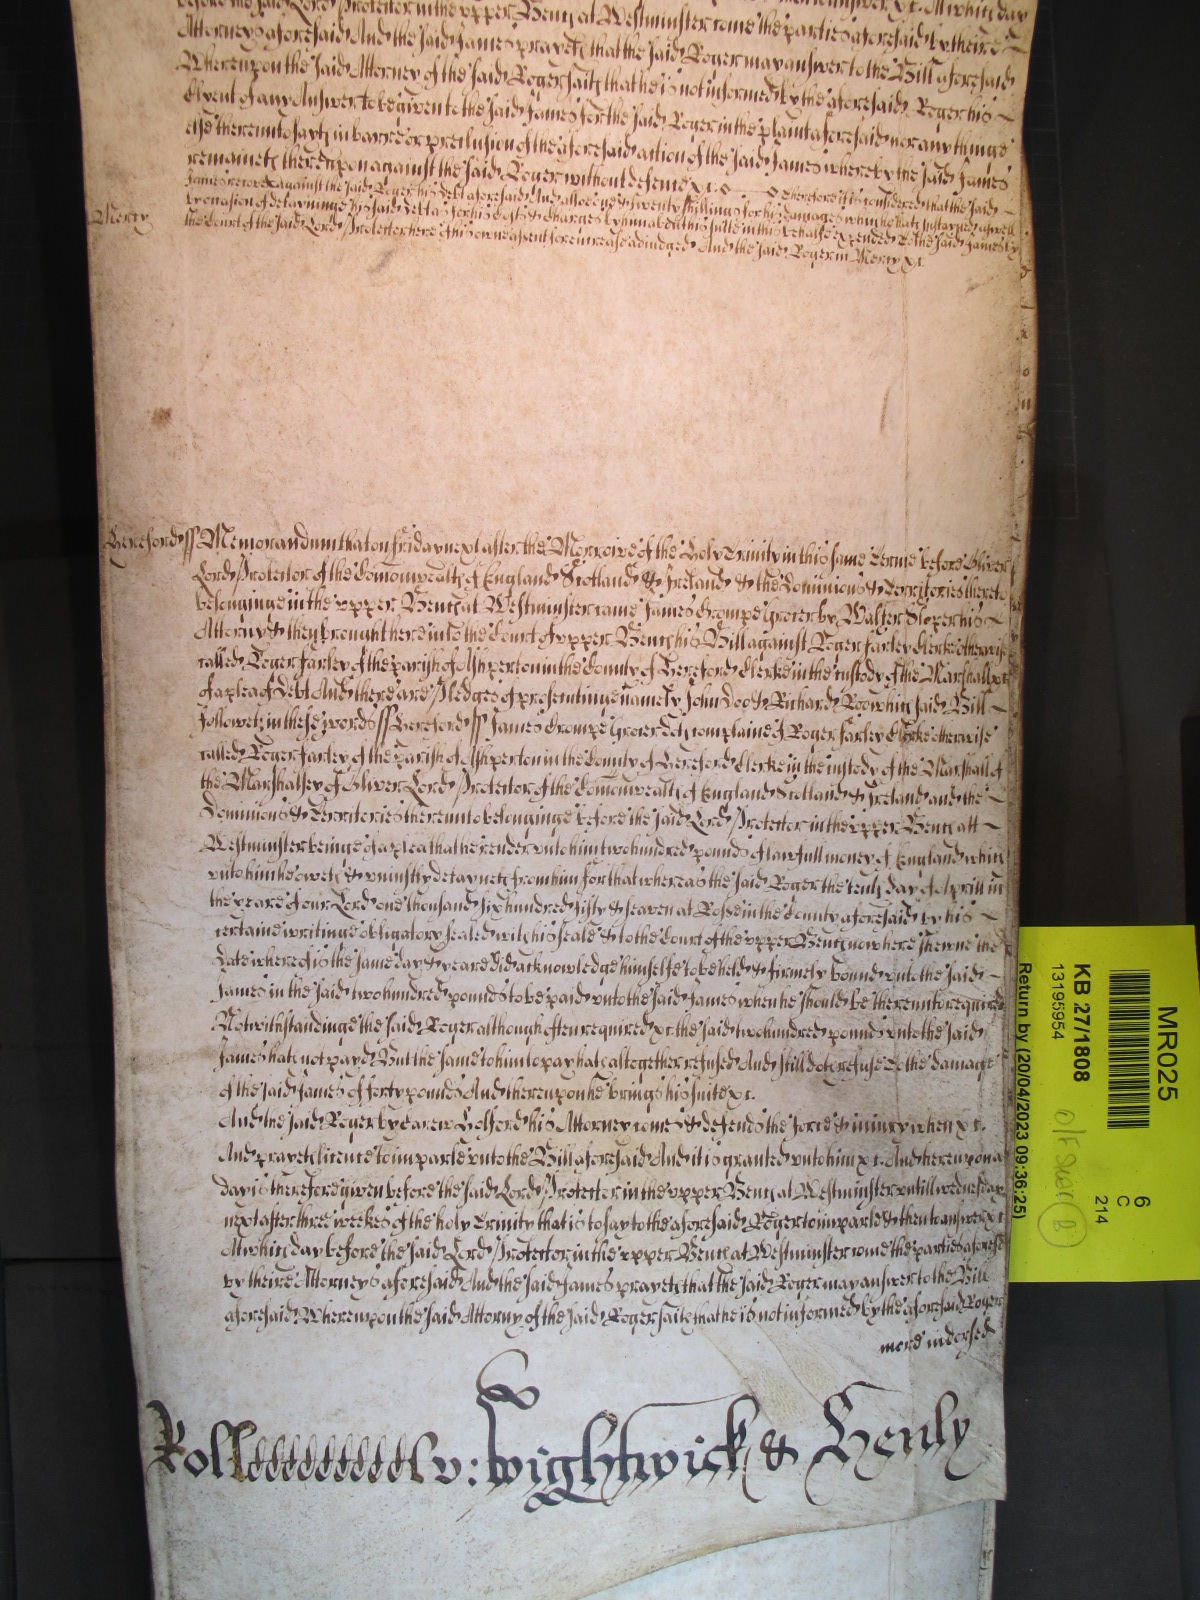 before the said Lord Protector in the upper Bench at Westminster come the parties aforesaid by theire
Attorneys aforesaid And the said James prayeth that the said Roger may answer to the Bill aforesaid
Whereupon the said Attorney of the said Roger saith that he is not informed by the aforesaid Roger his
Clyent of any Answer to be given to the said James for the said Roger in the plaint aforesaid nor any thinge
else thereunto sayth in barre or preclusion of the aforesaid action of the said James whereby the said James
remaineth thereupon against the said Roger without defence &c. Therefore it is considered that the said
James recover against the said Roger his debt aforesaid And alsoe and twenty shillings for his damages which he hath sustayned aswell
by occasion of detayninge his said debt as for his costs & charges by him about his suite in this behalfe expended to the said James by
Mercy the Court of the said Lord Protector here of his owne assent for encrease adiudged And the said Roger in Mercy &c.
Hereford ss Memorandum that on friday next after the Morrowe of the Holy Trinity in this same Terme before Oliver
Lord Protector of the Comonwealth of England Scotland & Ireland & the Dominions & Territories thereto
belonginge in the upper Bench at Westminster came James Crompe Grocer by Walter Sloper his
Attorny & then brought here into the Court of upper Bench his Bill against Roger farley Clerke otherwise
called Roger farley of the parish of Ashperton in the County of Hereford Clerke in the custody of the Marshall &c
of a plea of debt And there are Pledges of prosecutinge namely John Doo & Richard Roo which said Bill
followeth in these words ss Hereford ss James Crompe Grocer complaines of Roger farley Clerke otherwise
called Roger farley of the parish of Ashperton in the County of Hereford Clerke in the custody of the Marshall of
the Marshalsey of Oliver Lord Protector of the Comonwealth of England Scotland & Ireland and the
Dominions & Territories thereunto belonginge before the said Lord Protector in the upper Bench att
Westminster beinge of a plea that he render unto him two hundred pounds of lawfull money of England which
unto him he oweth & uniustly detayneth from him for that whereas the said Roger the tenth day of Aprill in
the yeare of our Lord one thousand six hundred fifty & seaven at Rosse in the County aforesaid by his
certaine writinge obligatory sealed with his seale & to the Court of the upper Bench now here shewne the
date whereof is the same day & yeare did acknowledge himselfe to be held & firmely bound unto the said
James in the said two hundred pounds to be paid unto the said James when he should be thereunto required
Notwithstandinge the said Roger although often required &c the said two hundred pounds unto the said
James hath not payd But the same to him to pay hath altogether refused And still doth refuse To the damage
of the said James of forty pounds And thereupon he brings his suite &c.
And the said Roger by Carew Holford his Attorney comes & defends the force & iniury when &c.
And prayeth licence to imparle unto the Bill aforesaid And it is granted unto him &c. And hereupon a
day is therefore given before the said Lord Protector in the upper Bench at Westminster untill wednesday
next after three weekes of the holy Trinity that is to say to the aforesaid Roger to imparle & then to answer &c
At which day before the said Lord Protector in the upper Bench at Westminster come the parties aforesd
by theire Attorneys aforesaid And the said James prayeth that the said Roger may answer to the Bill
aforesaid Whereupon the said Attorny of the said Roger saith that he is not informed by the aforesaid Roger
more indorsed
Roll v: Wightwick & Henly
MR025
KB 27/1808
13195954
Return by (20/04/2023 09:36:25)
6
C
214